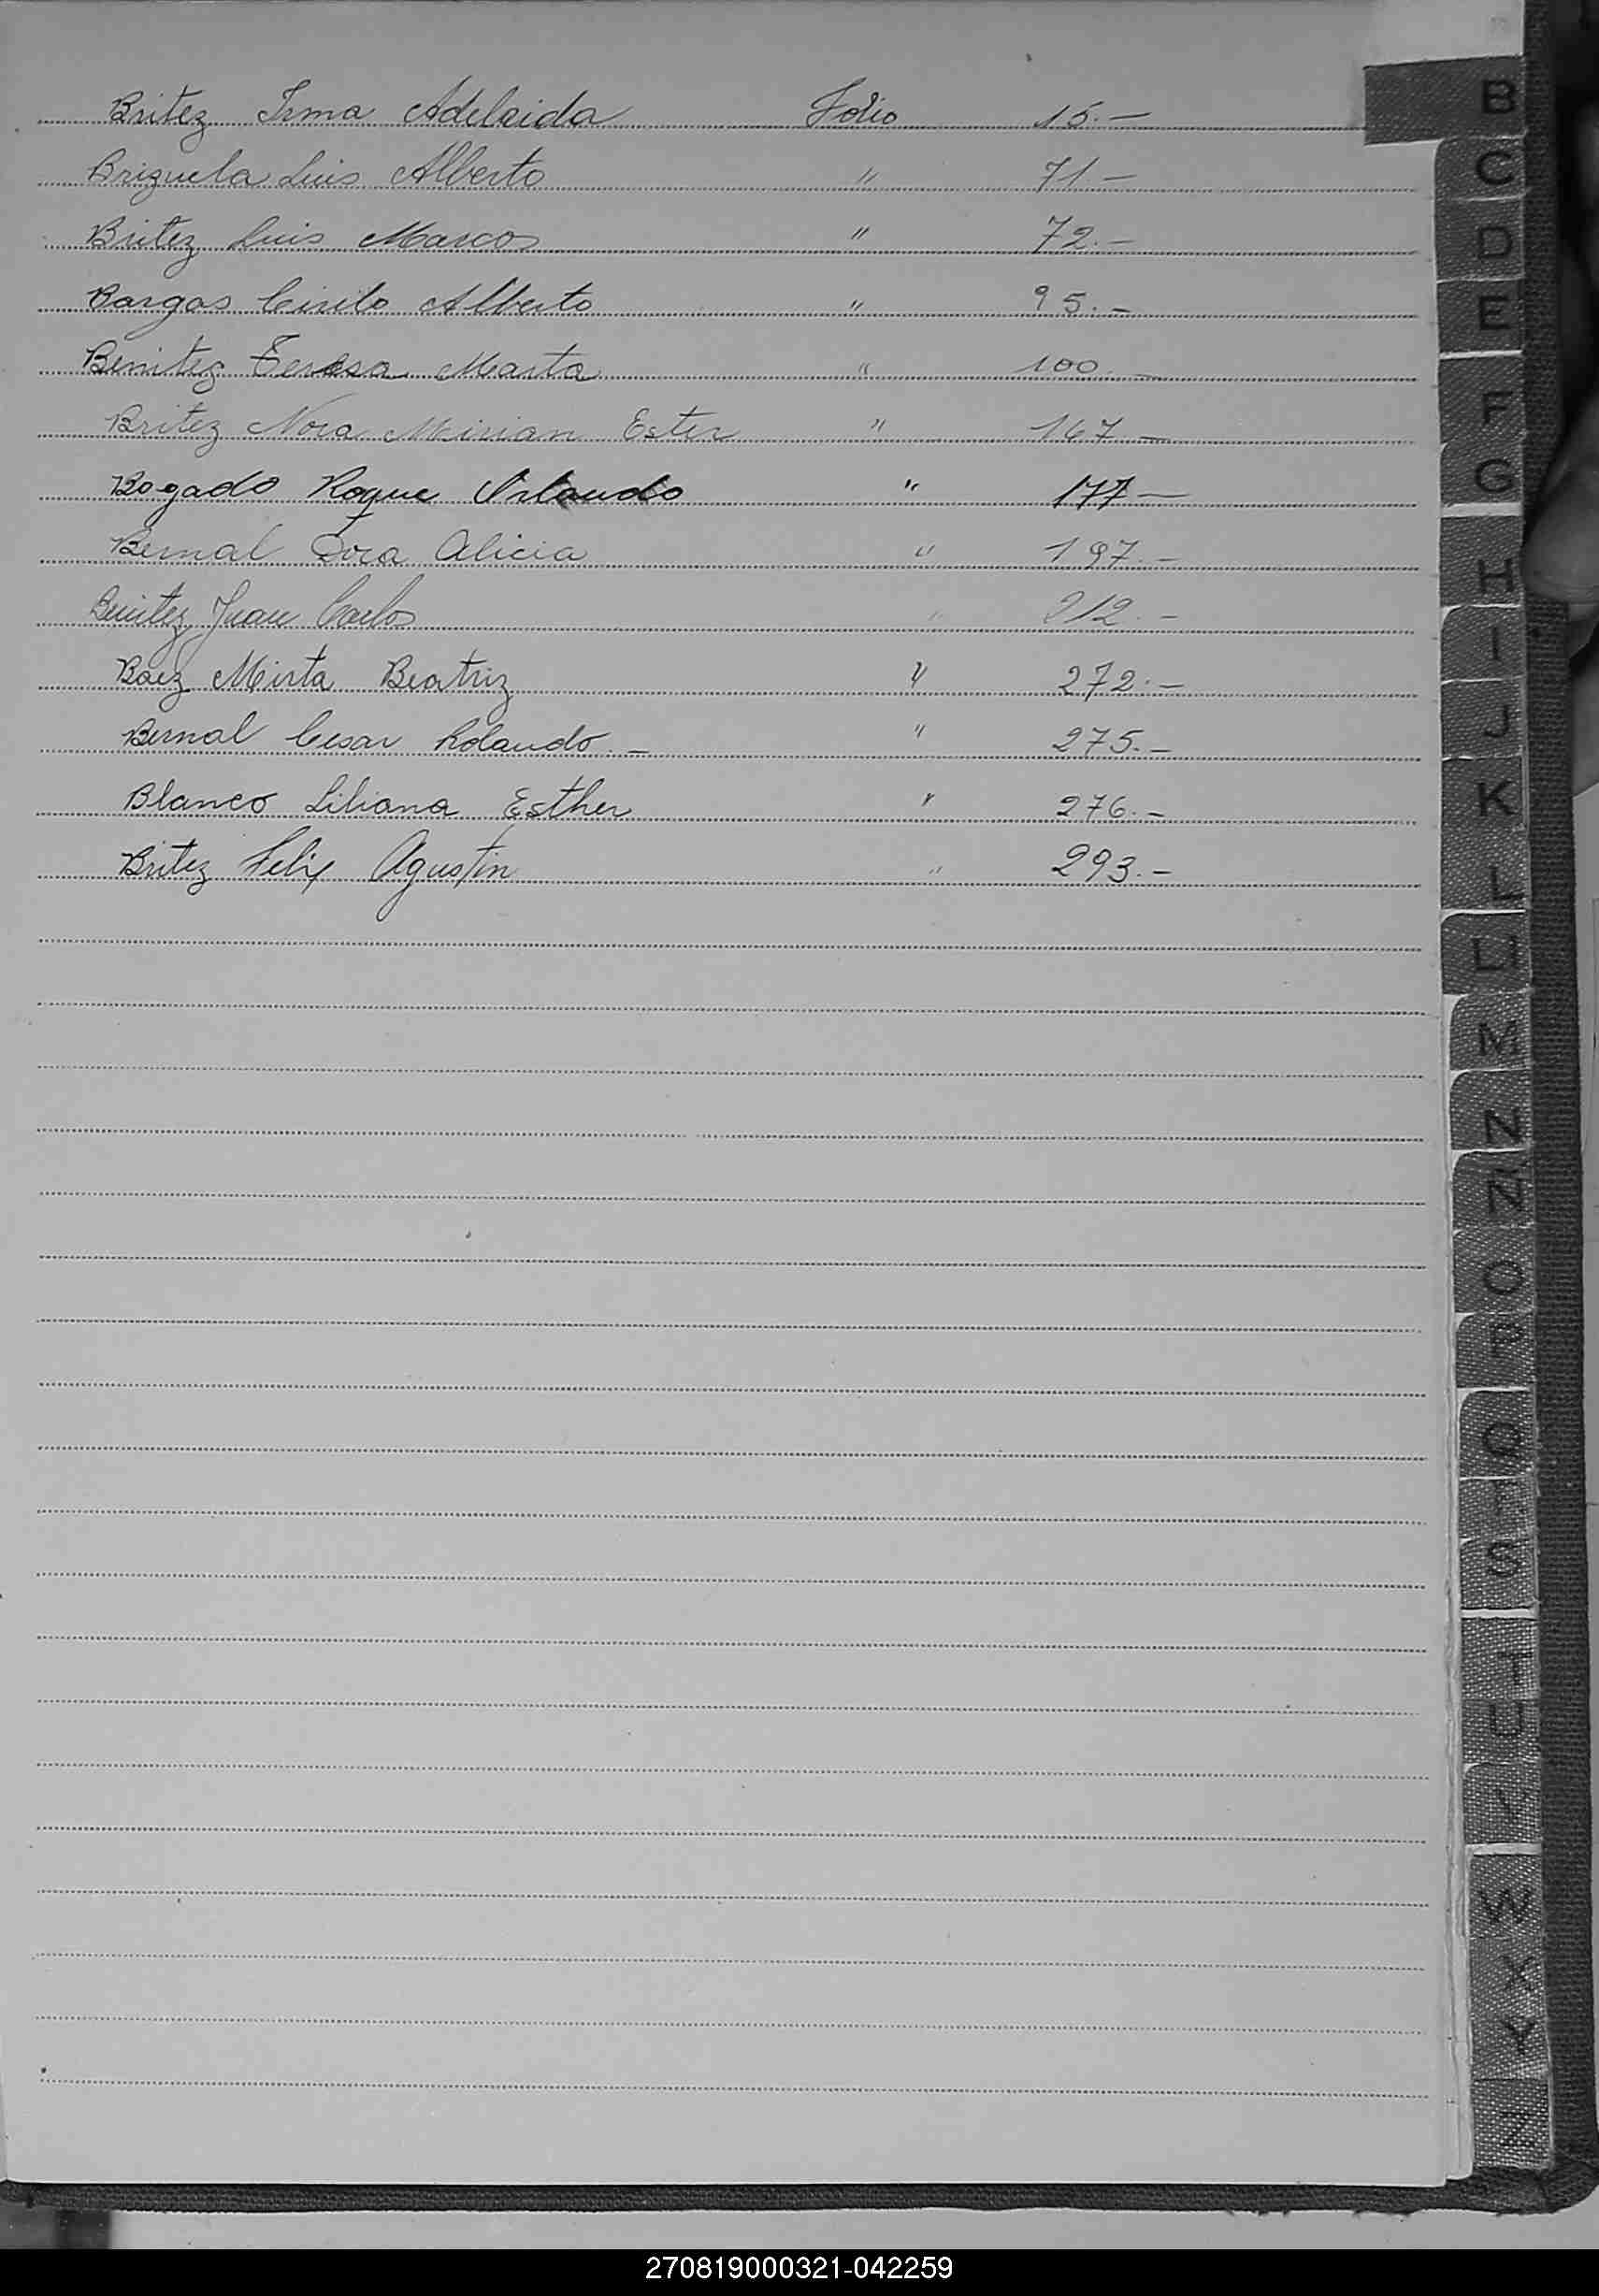 Britez Irma Adelaida Folio 15.-
Brizuela Luis Alberto " 71.-
Britez Luis Marcos " 72.-
Bargas Cirilo Alberto " 95.-
Benitez Teresa Marta " 100.-
Britez Nora Mirian Ester " 167.-
Bogado Roque Orlando " 177-
Bernal Dora Alicia " 197.-
Benitez Juan Carlos " 212.-
Baez Mirta Beatriz " 272.-
Bernal Cesar Rolando.- " 275.-
Blanco Liliana Esther " 276.-
Britez Felix Agustin " 293.-
B
C
D
E
F
G
H
I
J
K
L
LL
M
N
Ñ
O
P
Q
R
S
T
U
V
W
X
Y
Z
270819000321-042259